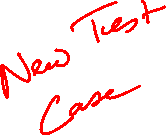 New Test
Case